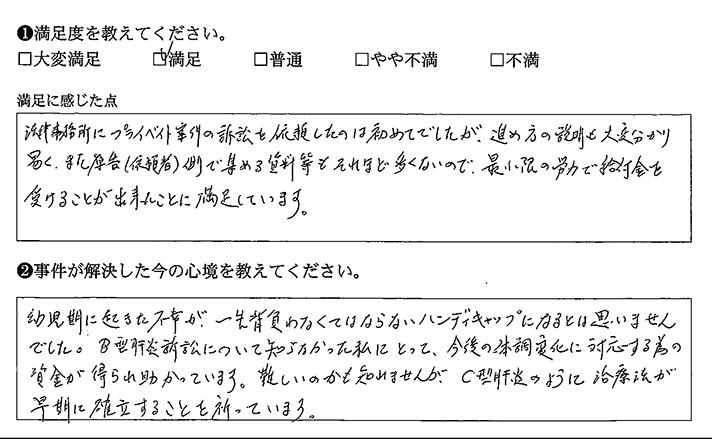 ❶満足度を教えてください。
□大変満足 ☑満足 □普通 □やや不満 □不満
満足に感じた点
法律事務所にプライベイト事件の訴訟を依頼したのは初めてでしたが、進め方の説明も大変分かり
易く、また原告(依頼者)側で集める資料等もそれほど多くないので、最小限の労力で給付金を
受けることが出来たことに満足しています。
❷事件が解決した今の心境を教えてください。
幼児期に起きた不幸が、一生背負わなくてはならないハンディキャップになるとは思いません
でした。B型肝炎訴訟について知らなかった私にとって、今後の体調変化に対応する為の
資金が得られ助かっています。難しいのかも知れませんが、C型肝炎のように治療法が
早期に確立することを祈っています。